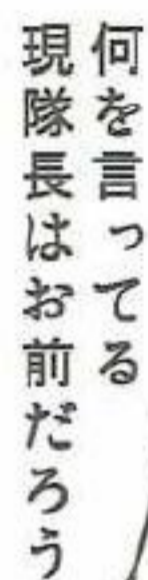 何を言ってる
現隊長はお前だろう